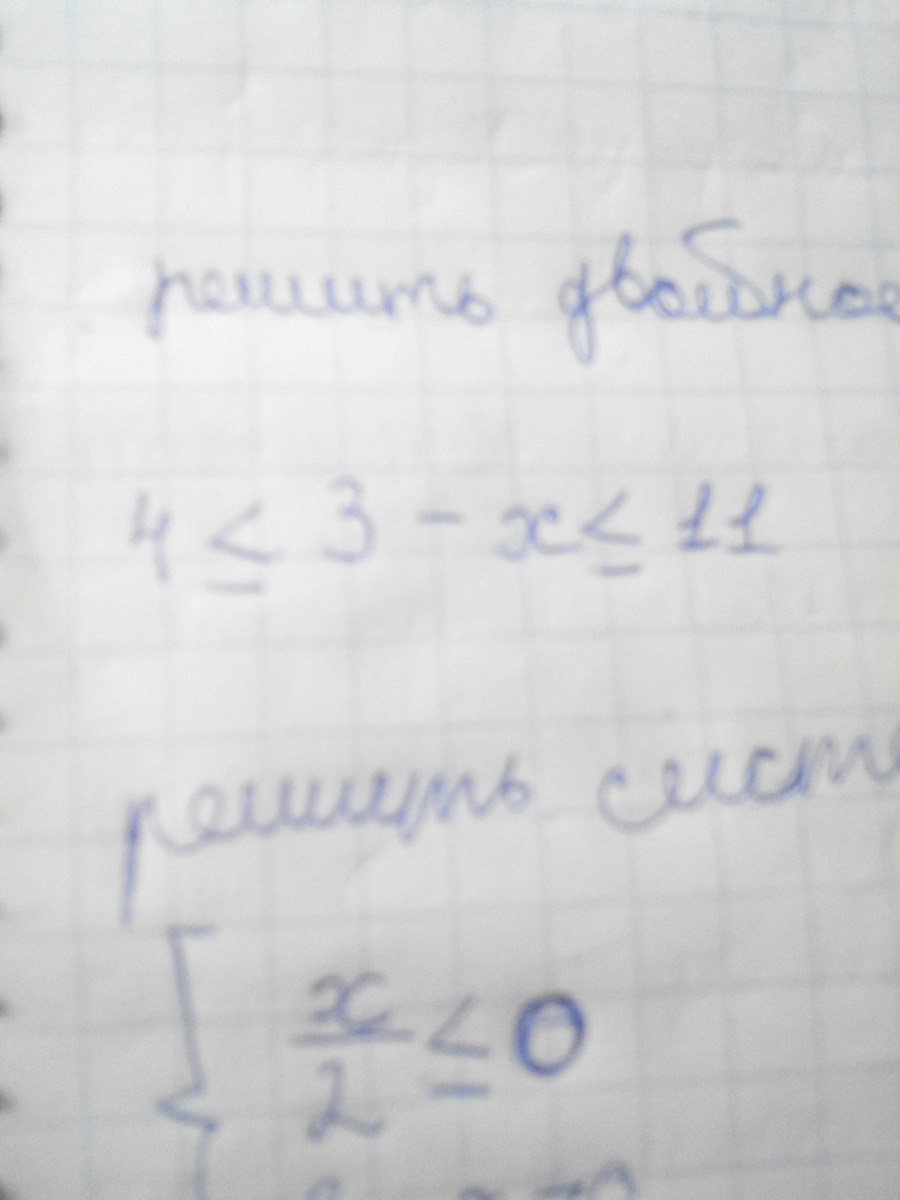 решить двойное
4 ≤ 3 - x ≤ 11
решить
x/2 ≤ 0